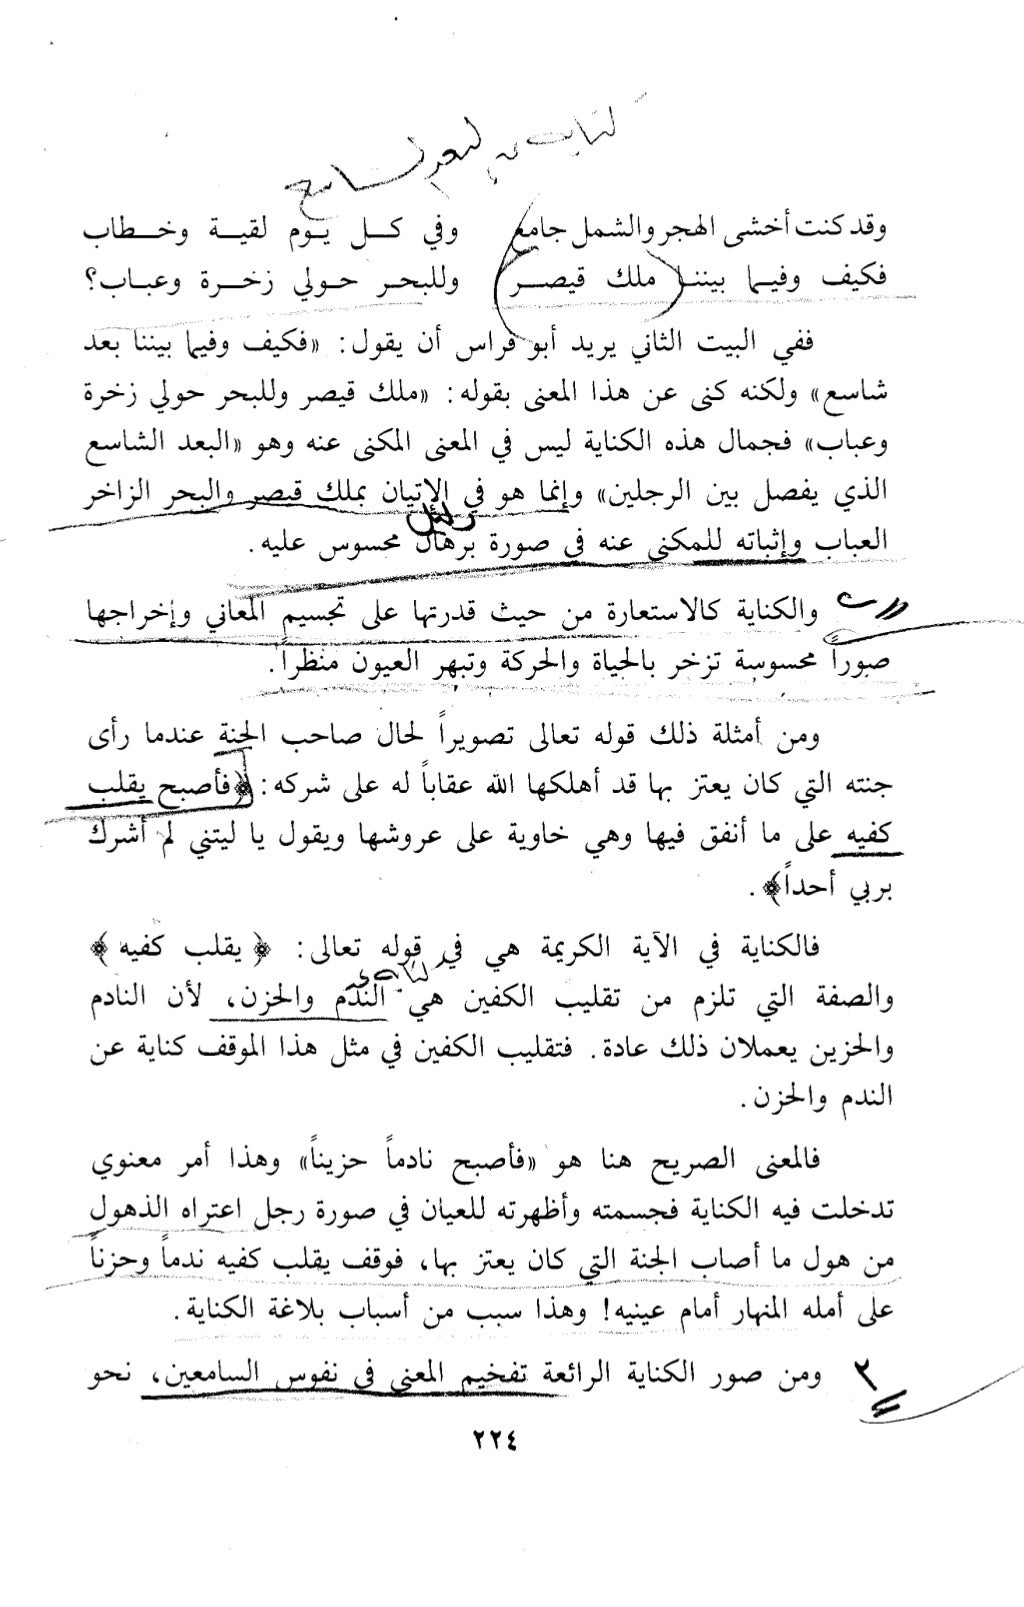 كناية عن البعد الشاسع
وقد كنت أخشى الهجر والشمل جامع وفي كل يوم لقية وخطاب
فكيف وفيما بيننا ملك قيصر وللبحر حولي زخرة وعباب؟
ففي البيت الثاني يريد أبو فراس أن يقول: «فكيف وفيما بيننا بعد
شاسع» ولكنه كنى عن هذا المعنى بقوله: «ملك قيصر وللبحر حولي زخرة
وعباب» فجمال هذه الكناية ليس في المعنى المكنى عنه وهو «البعد الشاسع
الذي يفصل بين الرجلين» وإنما هو في الإتيان بملك قيصر والبحر الزاخر
دليل
العباب وإثباته للمكنى عنه في صورة برهان محسوس عليه.
والكناية كالاستعارة من حيث قدرتها على تجسيم المعاني وإخراجها
صوراً محسوسة تزخر بالحياة والحركة وتبهر العيون منظراً.
ومن أمثلة ذلك قوله تعالى تصويراً لحال صاحب الجنة عندما رأى
جنته التي كان يعتز بها قد أهلكها الله عقاباً له على شركه: ﴿فأصبح يقلب
كفيه على ما أنفق فيها وهي خاوية على عروشها ويقول يا ليتني لم أشرك
بربي أحداً﴾.
فالكناية في الآية الكريمة هي في قوله تعالى: ﴿يقلب كفيه﴾
والصفة التي تلزم من تقليب الكفين هي الندم والحزن، لأن النادم
والحزين يعملان ذلك عادة. فتقليب الكفين في مثل هذا الموقف كناية عن
الندم والحزن.
فالمعنى الصريح هنا هو «فأصبح نادماً حزيناً» وهذا أمر معنوي
تدخلت فيه الكناية فجسمته وأظهرته للعيان في صورة رجل اعتراه الذهول
من هول ما أصاب الجنة التي كان يعتز بها، فوقف يقلب كفيه ندماً وحزناً
على أمله المنهار أمام عينيه! وهذا سبب من أسباب بلاغة الكناية.
٣ ومن صور الكناية الرائعة تفخيم المعنى في نفوس السامعين، نحو
٢٢٤